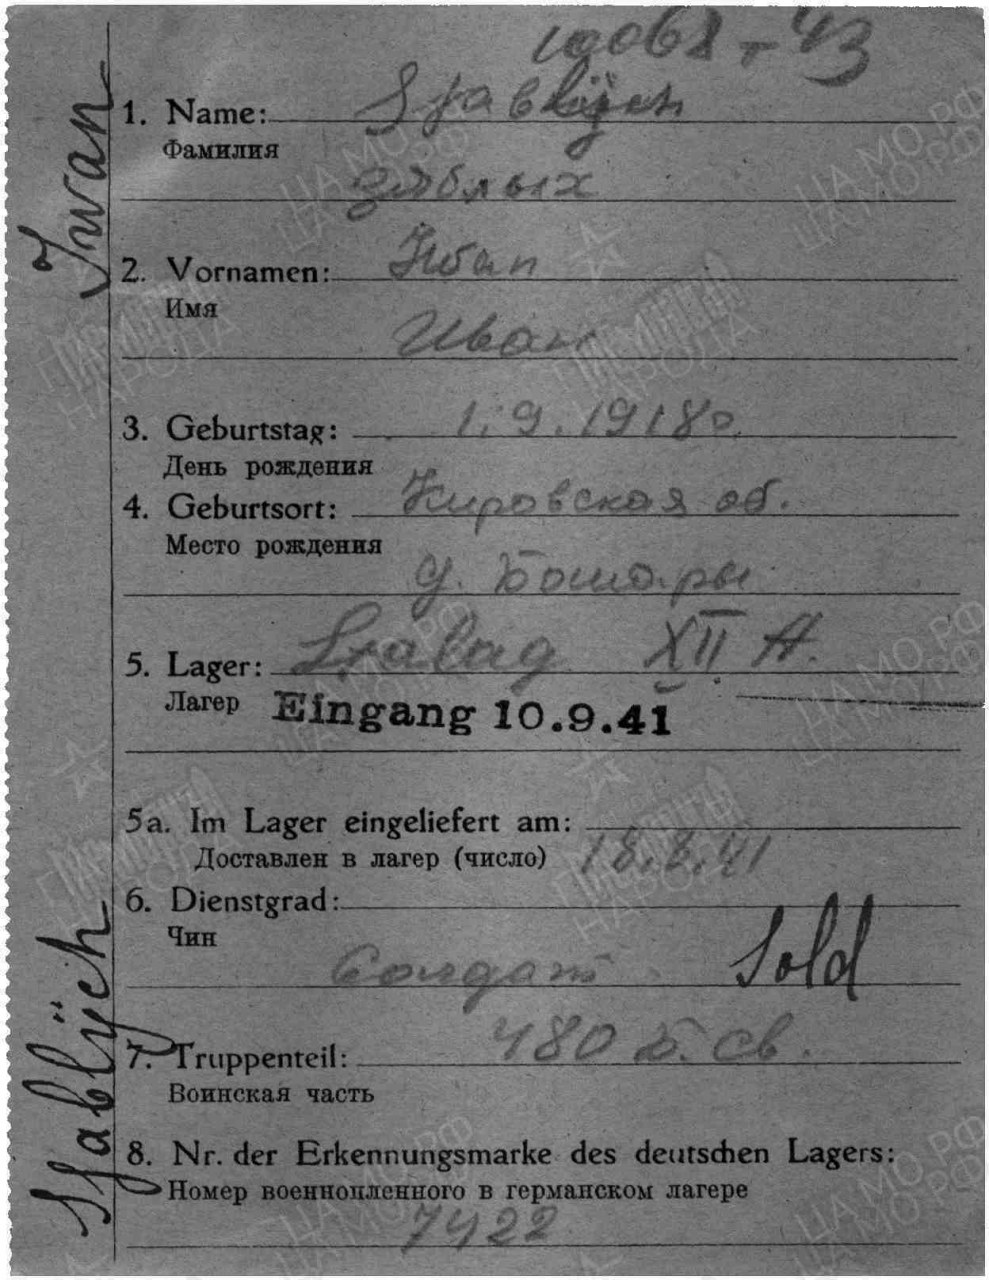 10068-43
1. Name: Sjablijch
Фамилия
Зяблых
2. Vornamen: Iwan
Имя
Иван
3. Geburtstag: 1.9.1918г.
День рождения
4. Geburtsort: Кировская об.
Место рождения
д.
5. Lager: Stalag XII A.
Лагер
Eingang 10.9.41
5a. Im Lager eingeliefert am:
Доставлен в лагер (число) 18.8.41
6. Dienstgrad:
Чин
Солдат Sold
7. Truppenteil: 480 б. св.
Воинская часть
8. Nr. der Erkennungsmarke des deutschen Lagers:
Номер военнопленного в германском лагере
7422
Sjablÿch Iwan
ЦА МО РФ
ПАМЯТЬ НАРОДА